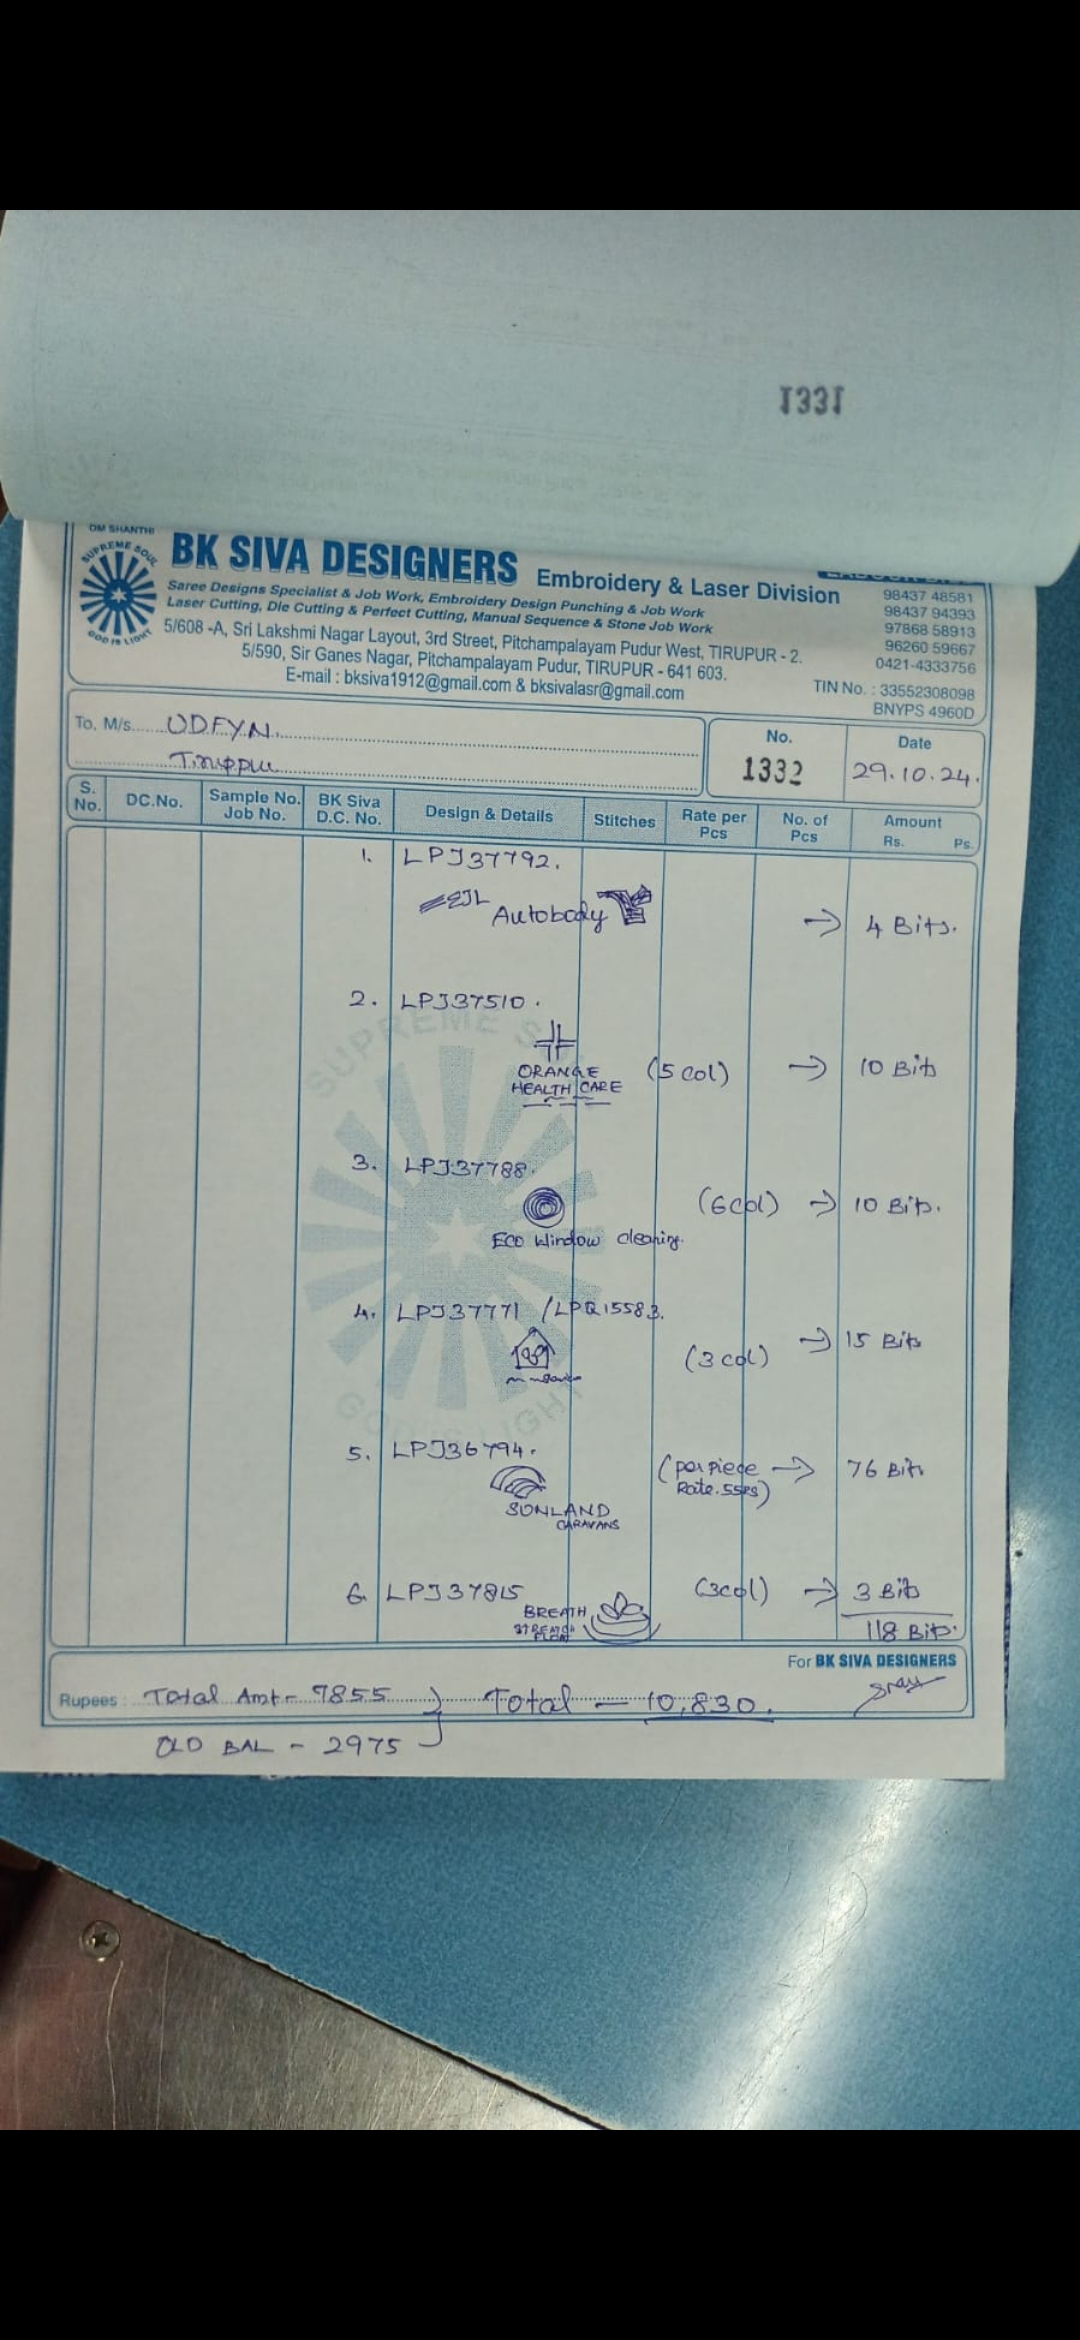 1331
OM SHANTHI
SUPREME SOUL
GOD IS LIGHT
BK SIVA DESIGNERS Embroidery & Laser Division
Saree Designs Specialist & Job Work, Embroidery Design Punching & Job Work
Laser Cutting, Die Cutting & Perfect Cutting, Manual Sequence & Stone Job Work
5/608 -A, Sri Lakshmi Nagar Layout, 3rd Street, Pitchampalayam Pudur West, TIRUPUR - 2.
5/590, Sir Ganes Nagar, Pitchampalayam Pudur, TIRUPUR - 641 603.
E-mail : bksiva1912@gmail.com & bksivalasr@gmail.com
98437 48581
98437 94393
97868 58913
96260 59667
0421-4333756
TIN No. : 33552308098
BNYPS 4960D
To, M/s. UDFYN.
Tiruppur
No.
1332
Date
29.10.24.
S. No. DC.No. Sample No. Job No. BK Siva D.C. No. Design & Details Stitches Rate per Pcs No. of Pcs Amount Rs. Ps.
1. LPJ37792.
EJL Autobody → 4 Bits.
2. LPJ37510.
ORANGE
HEALTH CARE (5 col) → 10 Bits
3. LPJ37788.
(6 col) → 10 Bits.
Eco Window cleaning.
4. LPJ37771 / LPQ15583.
(3 col) → 15 Bits
5. LPJ36794.
(per piece → 76 Bits
Rate. 55rs)
SUNLAND
CARAVANS
6. LPJ37815 (3 col) → 3 Bits
BREATH
118 Bits.
SUPREME SOUL
GOD IS LIGHT
For BK SIVA DESIGNERS
Rupees : Total Amt - 7855 } Total — 10,830.
OLD BAL - 2975